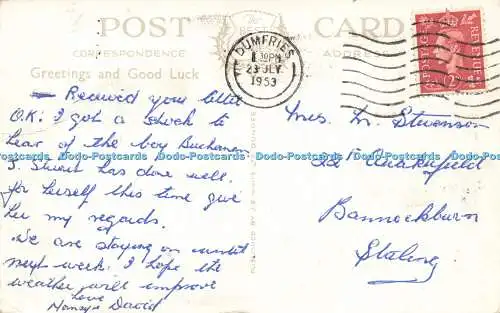 POST CARD
CORRESPONDENCE ADDRESS
Greetings and Good Luck
DUMFRIES
PM
23 JLY
1953
Received your letter
O.K. I got a shock to
hear of the boy Buchanan
J. Stuart has done well
for herself this time give
her my regards.
We are staying on until
next week. I hope the
weather will improve
love
David
Mrs. M. Stevenson
Bannockburn
Stirling
Dodo-Postcards Dodo-Postcards Dodo-Postcards Dodo-Postcards